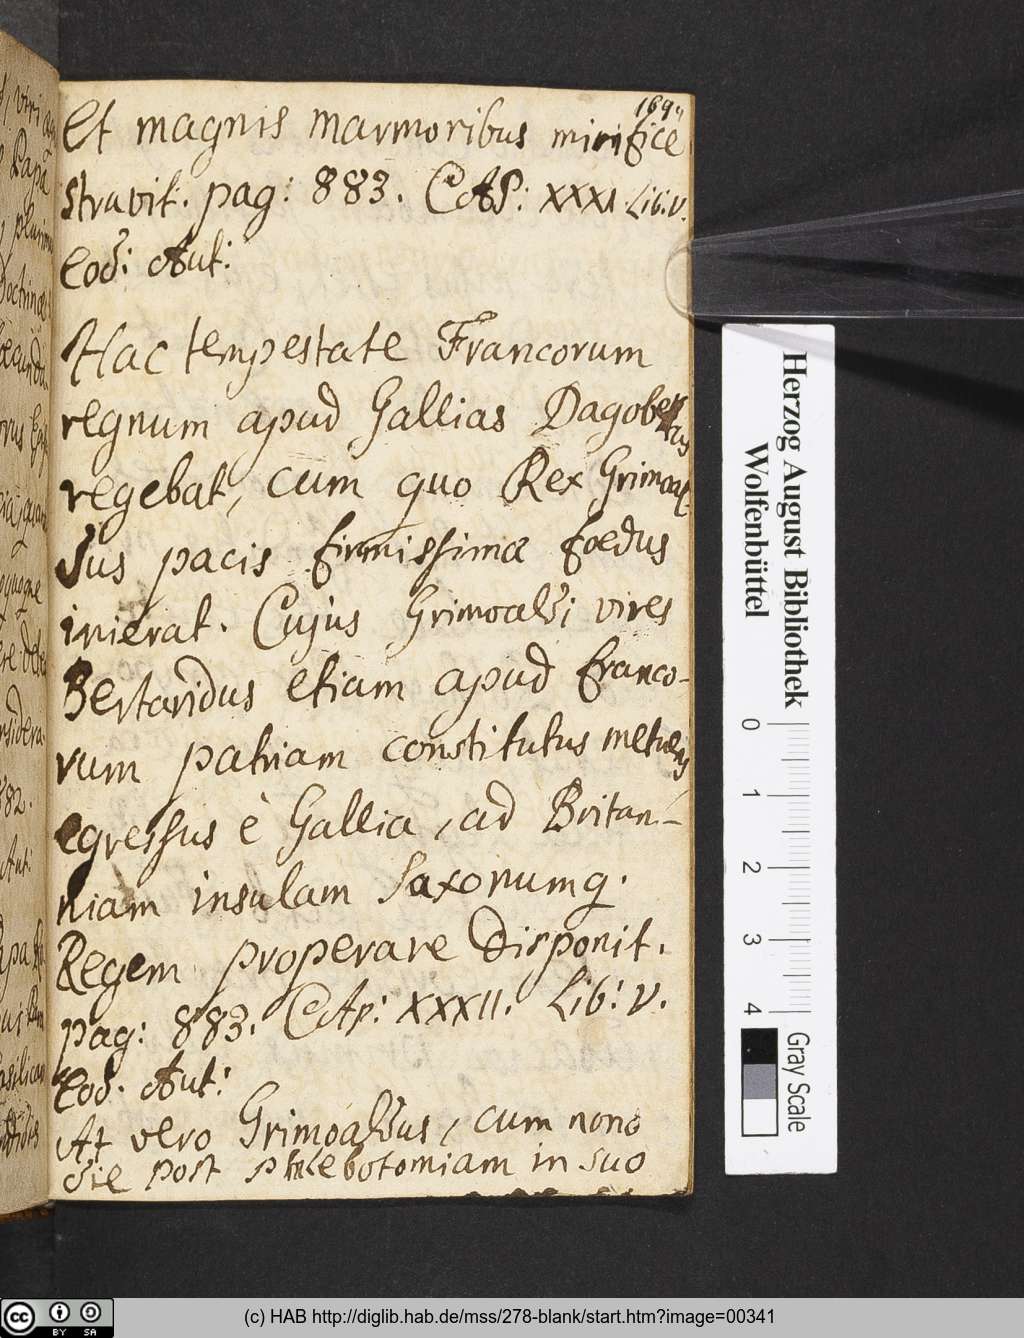 169
Et magnis marmoribus mirifice
stravit. pag: 883. CAP: XXXI. Lib. V.
Eod: Aut:
Hac tempestate Francorum
regnum apud Gallias Dagobertus
regebat, cum quo Rex Grimoal-
dus pacis firmissimæ foedus
inierat. Cujus Grimoaldi vires
Bertaridus etiam apud Franco-
rum patriam constitutus metuens
egressus è Gallia, ad Britan-
niam insulam Saxonumq.
Regem properare disponit.
pag: 883. CAp: XXXII. Lib: V.
Eod. Aut:
At vero Grimoaldus, cum nono
die post phlebotomiam in suo
Herzog August Bibliothek
Wolfenbüttel
0 1 2 3 4
Gray Scale
cc BY SA
(c) HAB http://diglib.hab.de/mss/278-blank/start.htm?image=00341